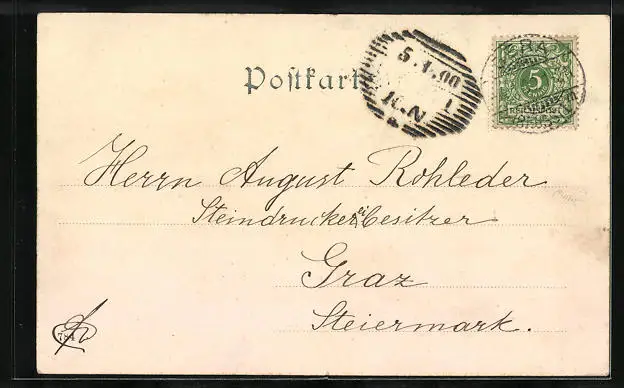 Postkarte
5.1.00
10.N. 1
GERA
5
REICHSPOST
Herrn August Rohleder
Steindruckereibesitzer
Graz
Steiermark.